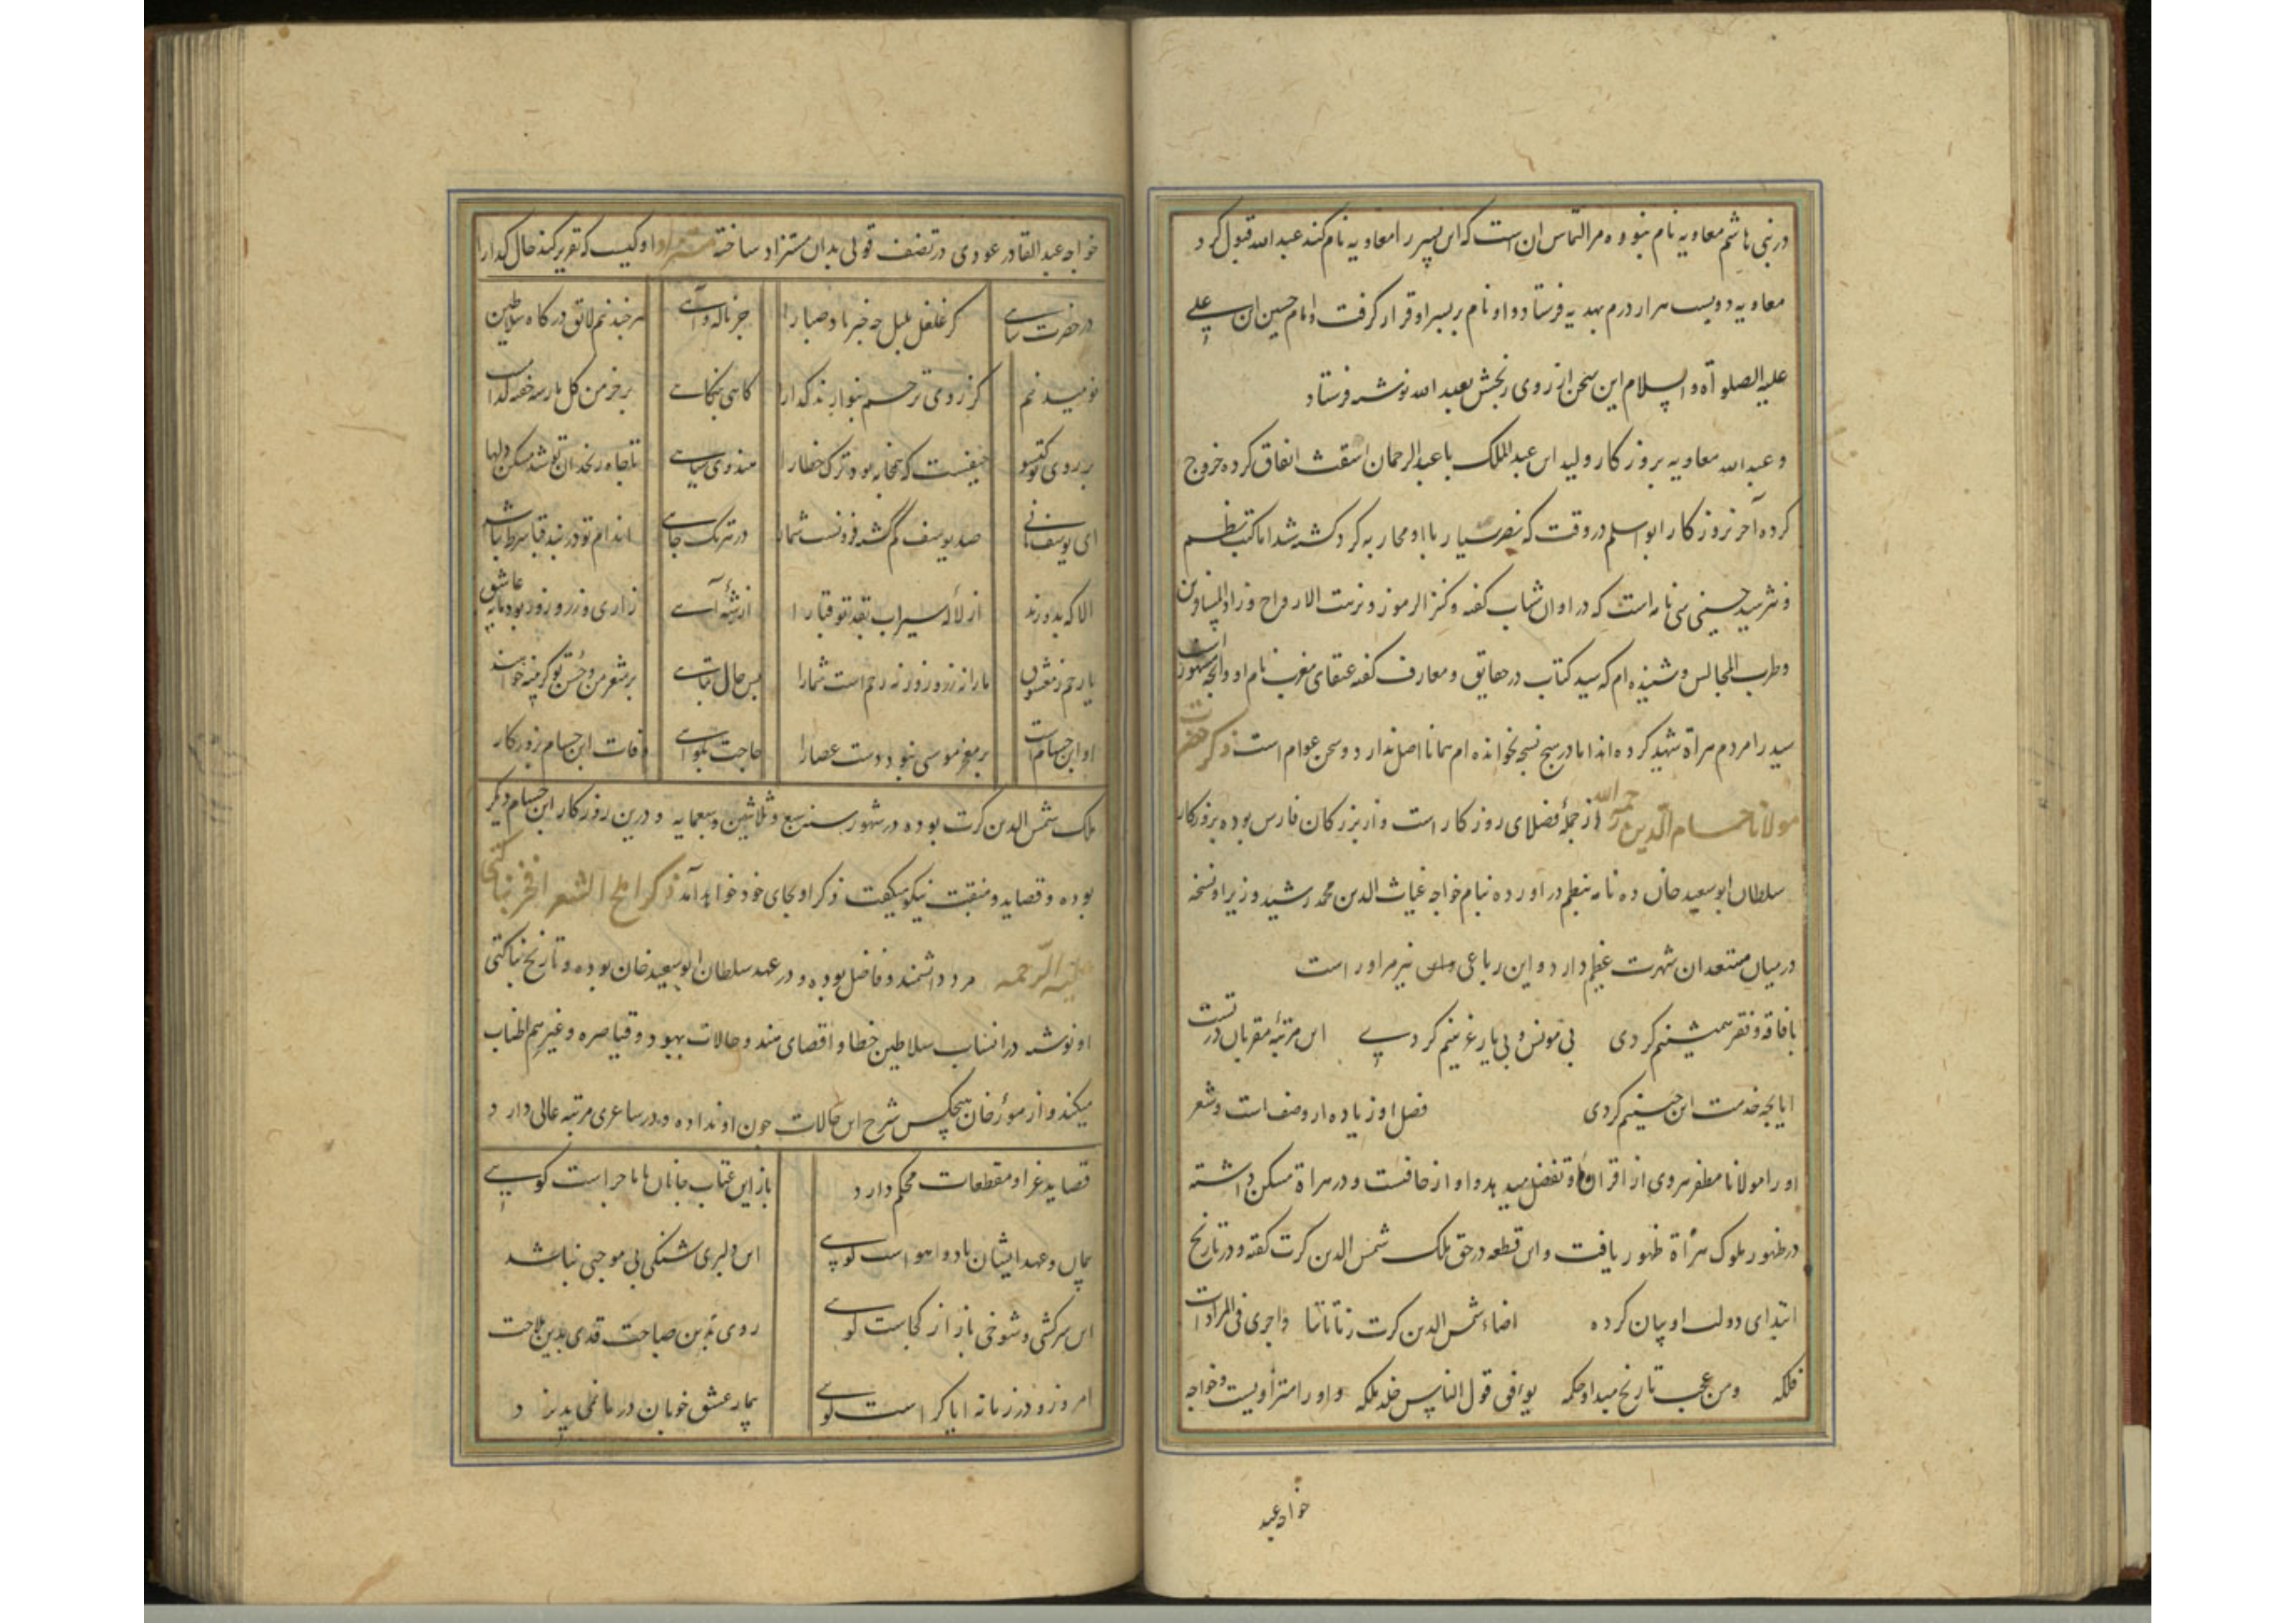 در بنی هاشم معاویه نام نبوده مرا التماس ان است که این پسر را معاویه نام کند عبدالله قبول کرد
معاویه دویست هزار درم بهدیه فرستاد و او نام بر پسر او قرار گرفت و امام حسین ابن علی
علیه الصلوة و السلام این سخن از روی رنجش بعبدالله نوشته فرستاد
و عبدالله معاویه بروزکار ولید ابن عبدالملک با عبدالرحمان اشقث اتفاق کرده خروج
کرده آخر بروزکار ابو اسلم در وقت که نصر سیار با او محاربه کرد کشته شد اما کتب نظم
و نثر سید حسینی سی نامه است که در اوان شباب کفته و کنز الرموز و نزهت الارواح و زاد المسافرین
و طرب المجالس و شنیده ام که سید کتاب در حقایق و معارف کفته عنقای مغرب نام او و آنچه مشهور است
سید را مردم هراة شهید کرده اند اما در هیچ نسخه نخوانده ام همانا اصل ندارد و سخن عوام است ذکر حضرت
مولانا حسام الدین رحمه الله از جملۀ فضلای روزکار است و از بزرکان فارس بوده بروزکار
سلطان ابوسعید خان ده نامه بنظم در اورده بنام خواجه غیاث الدین محمد رشید وزیر او نسخه
در میان مستعدان شهرت عظیم دارد و این رباعی نیز مر او راست
با فاقه و فقر همنشینم کردی بی مونس و بی یار غمینم کردی این مرتبۀ مقربان در تست
ایا بچه خدمت این چنینم کردی فضل او زیاده از وصف است و شعر
او را مولانا مظفر هروی از اقران او تفضل مینهد و او از خافست و در هراة مسکن داشته
در ظهور ملوک هراة ظهور یافت و این قطعه در حق ملک شمس الدین کرت کفته و در تاریخ
ابتدای دولت او بیان کرده اضاء شمس الدین کرت زماننا و اجری فی المرادات
فلکه و من عجب تاریخ مبداء حکمه یوافق قول الناس خلد ملکه و او را مستزاد یست و خواجه
خواجه عبد
خواجه عبدالقادر عودی در تصنیف قولی بدان مستزاد ساخته مستزاد او کیست که تقریر کند حال کدا را
در حضرت شاهی کز غلغل بلبل چه خبر باد صبا را جز ناله و آهی هر چند نیم لایق درکاه سلاطین
نومید نیم کز روی ترحم بنوازند کدا را کاهی بنکاهی بر خرمن کل
بر روی تو کیسو حیفست که همخابه بود ترک خطا را هندوی سیاهی تا چاه زنخدان تو شد مسکن دلها
ای یوسف ثانی صد یوسف کم کشته فزونست شما را در هر تک چاهی اندام تو در بند قبا شرط نباشد
الا که بدوزند از لالۀ سیراب بقد تو قبا را زاری و زر و زور بود مایۀ عاشق
یا رحم ز معشوق ما را نه زر و زور نه رحم است شما را بس حال تباهی بر شعر من و حسن تو کر بینه خواهند
او ابن حسام است بر معجز موسی نبود دست عصا را حاجت بکواهی وفات ابن حسام بروزکار
ملک شمس الدین کرت بوده در شهور سنه سبع و ثلاثین و سبعمایه و درین روزکار ابن حسام دیکر
بوده و قصاید و منقبت نیکو میکفت ذکر او بجای خود خواهد آمد ذکر املح الشعر افخر بناکتی
علیه الرحمه مرد دانشمند و فاضل بوده و در عهد سلطان ابوسعید خان بوده و تاریخ بناکتی
او نوشته در انساب سلاطین خطا و اقصای هند و حالات یهود و قیاصره و غیرهم اطناب
میکند و از مورخان هیچکس شرح این حالات چون او نداده و در شاعری مرتبه عالی دارد
قصاید غرا و مقطعات محکم دارد باز این عتاب جانان با ما چراست کویی
پیمان و عهد ایشان باد و هواست کویی این دلبری شنکی بی موجبی نباشد
این سرکشی و شوخی باز از کجاست کویی روی بدین صباحت قدی بدین ملاحت
امروز در زمانه ایا کراست کویی بیمار عشق خوبان درمان نمی پذیرد